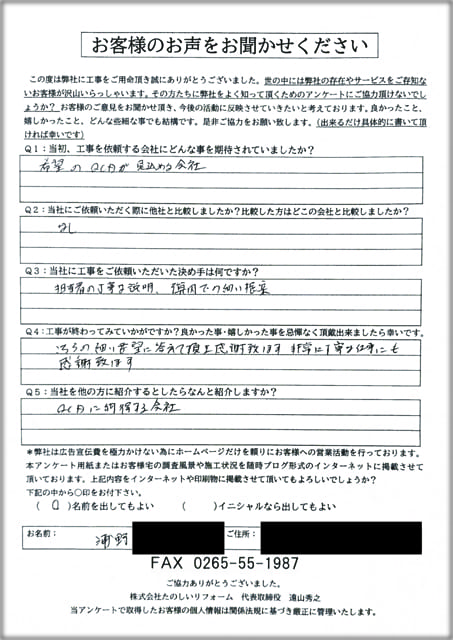 お客様のお声をお聞かせください
この度は弊社に工事をご用命頂き誠にありがとうございました。世の中には弊社の存在やサービスをご存知な
いお客様が沢山いらっしゃいます。その方たちに弊社をよく知って頂くためのアンケートにご協力頂けないで
しょうか？お客様のご意見をお聞かせ頂き、今後の活動に反映させていきたいと考えております。良かったこと、
嬉しかったこと。どんな些細な事でも結構です。是非ご協力をお願い致します。(出来るだけ具体的に書いて頂
ければ幸いです)
Q1：当初、工事を依頼する会社にどんな事を期待されていましたか？
希望の が見込める会社
Q2：当社にご依頼いただく際に他社と比較しましたか？比較した方はどこの会社と比較しましたか？
なし
Q3：当社に工事をご依頼いただいた決め手は何ですか？
担当者の丁寧な説明、 での細い提案
Q4：工事が終わってみていかがですか？良かった事・嬉しかった事を忌憚なく頂戴出来ましたら幸いです。
こちらの細い希望に答えて頂き感謝致します 非常に丁寧な仕事にも
感謝致します
Q5：当社を他の方に紹介するとしたらなんと紹介しますか？
に納得する会社
＊弊社は広告宣伝費を極力かけない為にホームページだけを頼りにお客様への営業活動を行っております。
本アンケート用紙またはお客様宅の調査風景や施工状況を随時ブログ形式のインターネットに掲載させて
頂いております。上記内容をインターネットや印刷物に掲載させて頂いてもよろしいでしょうか？
下記の中から○印をお付下さい。
(○)名前を出してもよい ( )イニシャルなら出してもよい
お名前： 浦野 ご住所：
FAX 0265-55-1987
ご協力ありがとうございました。
株式会社たのしいリフォーム 代表取締役 遠山秀之
当アンケートで取得したお客様の個人情報は関係法規に基づき厳正に管理いたします。